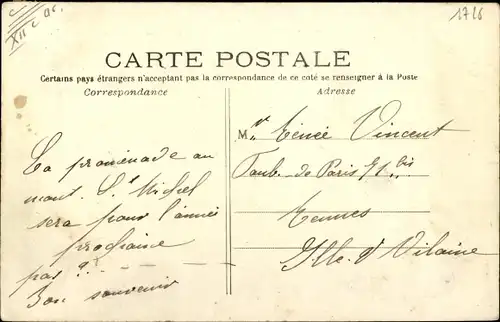 XII c ar.
1716
CARTE POSTALE
Certains pays étrangers n'acceptant pas la correspondance de ce coté se renseigner à la Poste
Correspondance
Adresse
La promenade au
mont. St Michel
sera pour l'année
prochaine
pas ?..
Bon souvenir
Mr Renée Vincent
Faub. de Paris 51 bis
Rennes
Ille. & Vilaine